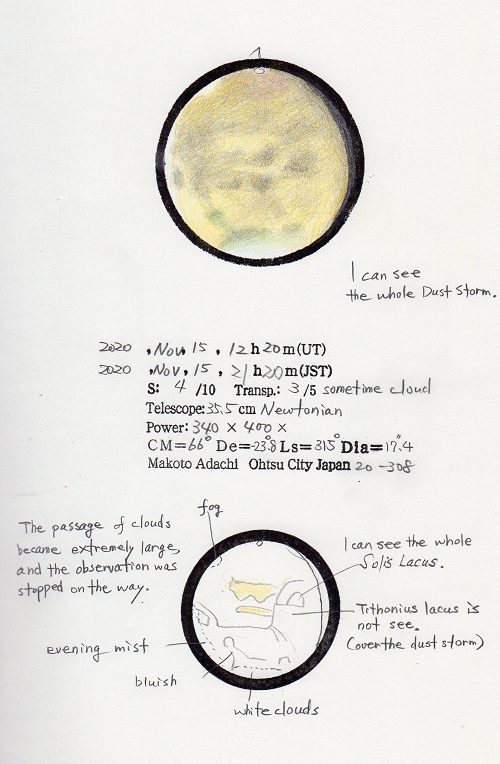 I can see
the whole Dust Storm.
2020 , Nov, 15 , 12h20m(UT)
2020 , Nov, 15 , 21h20m(JST)
S: 4 /10 Transp.: 3/5 sometime cloud
Telescope: 35.5 cm Newtonian
Power: 340 × 400 ×
CM=66° De=-23.8 Ls=315° Dia=17.4"
Makoto Adachi Ohtsu City Japan 20-308
fog
The passage of clouds
became extremely large,
and the observation was
stopped on the way.
I can see the whole
Solis Lacus.
Tithonius lacus is
not see.
(over the dust storm)
evening mist
bluish
white clouds